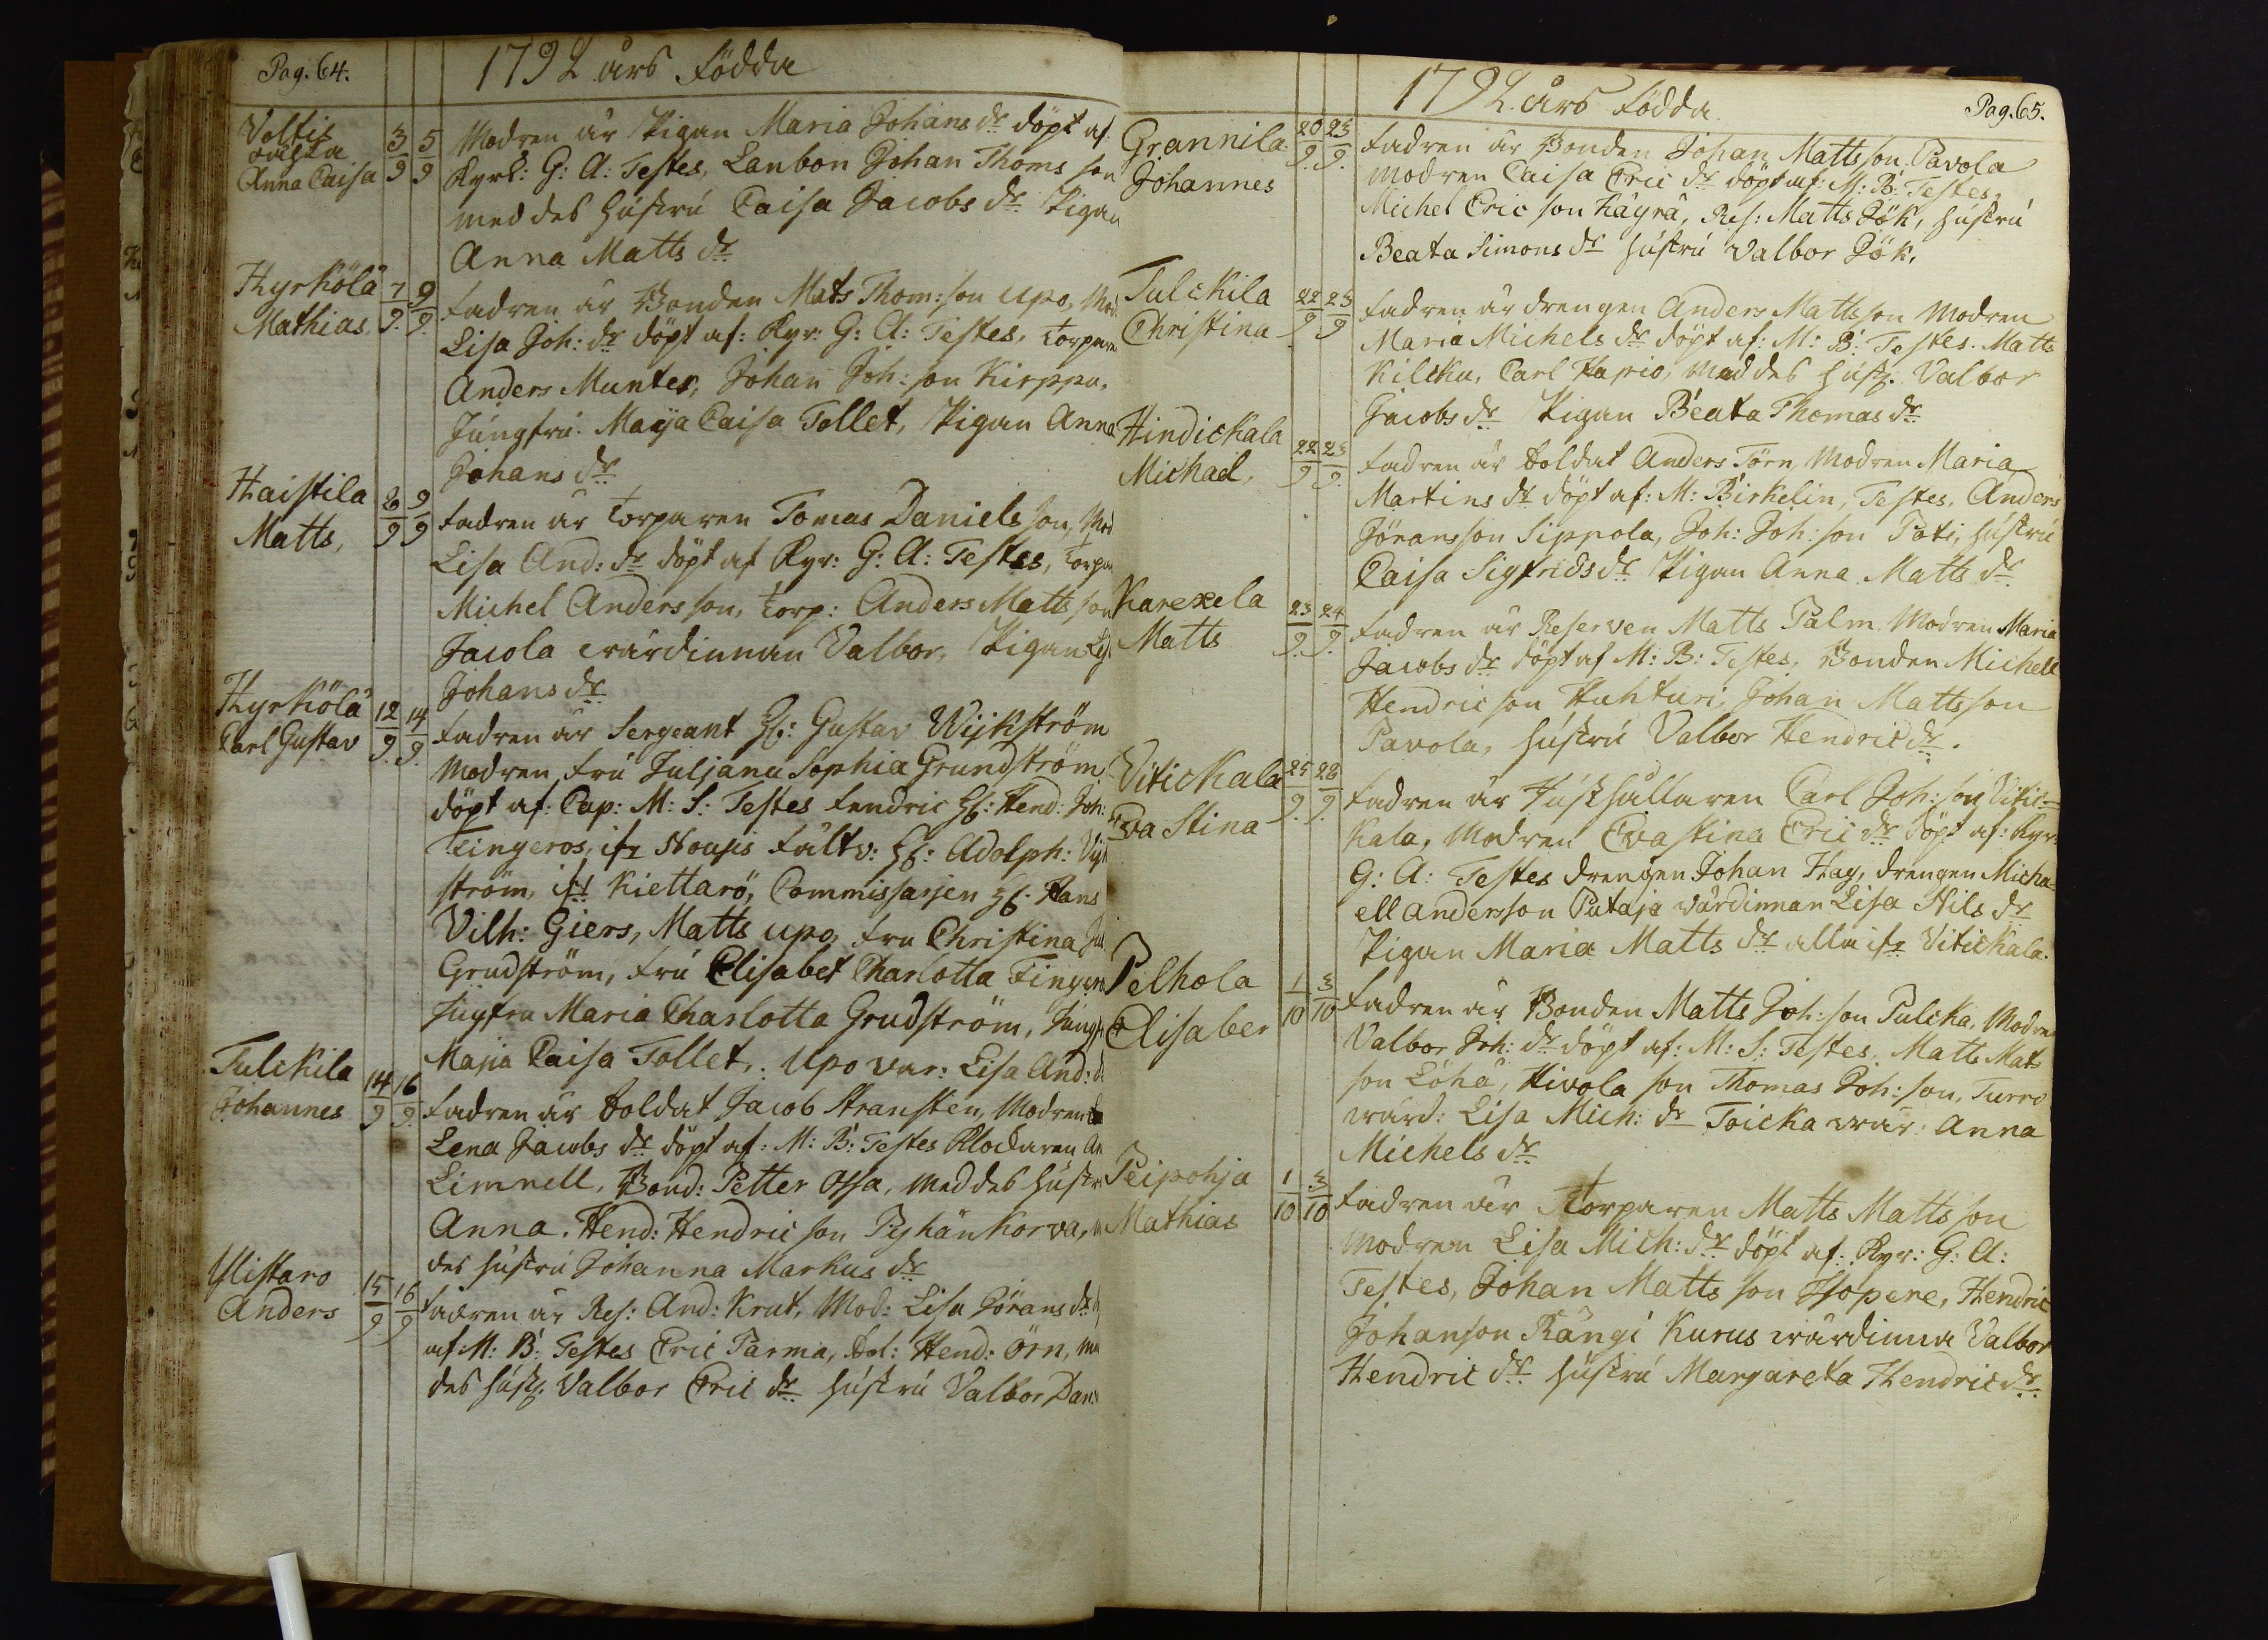 Pag. 64.
1792 års födda
Voltis
oäckta
Anna Caisa
3/9 5/9
Modren är Pigan Maria Johans dr döpt af
Kyrk: G: A: Testes, Lanbon Johan Thoms son
med des hustru Caisa Jacobs dr Pigan
Anna Matts dr
Kyrkölä
Mathias
7/9. 9/9.
fadren är Bonden Mats Thom: son Upo, Mod.
Lisa Joh: dr döpt af: Kyr: G: A: Testes, torparn
Anders Munter, Johan Joh: son Kirppu,
Jungfru Maja Caisa Tollet, Pigan Anna
Johans dr
Haistila
Matts,
8/9 9/9
fadren är torparen Tomas Daniels son, Mod
Lisa And: dr döpt af Kyr: G: A: Testes, torpa
Michel Anders son, torp: Anders Matts son
Jacola wärdinnan Valbor, Pigan
Johans dr
Kyrkölä
Carl Gustav
12/9. 14/9.
fadren är Sergeant H: Gustav Wijkström
Modren fru Juljana Sophia Grundström
döpt af: Cap: M: S: Testes fendric H: Hend: Joh:
Fingeros, ifr Noujis fältv: H: Adolph:
ström, ifr Kiettarö, Commissarjen H: Hans
Vilh: Giers, Matts upo, fru Christina
Grudström, fru Elisabet Charlotta Fingero
Jugfru Maria Charlotta Grudström, Jungf
Maja Caisa Tollet, Upo var: Lisa And: d
Tulckila
Johannes
14/9 16/9.
fadren är Soldat Jacob Stransten, Modren
Lena Jacobs dr döpt af: M: B: Testes Klockaren An
Limnell, Bond: Petter Ossa, med des hustru
Anna. Hend: Hendric son Pyhänkorva,
des hustru Johanna Markus dr
Ylistaro
Anders
15/9 16/9
fadren är Res: And: Krut, Mod: Lisa Görans dr
af M: B: Testes Eric Parma, Sol: Hend: Örn, me
des hust: Valbor Eric dr hustru Valbor Dan:
1792 års födda
Pag. 65.
Grannila
Johannes
20/9. 23/9.
fadren är Bonden Johan Mattsson Pavola
modren Caisa Eric dr döpt af: M: B: Testes,
Michel Eric son Kägrä, Res: Matts Jök, hustru
Beata Simons dr hustru Valbor Jök.
Tulckila
Christina
22/9 23/9
fadren är drengen Anders Mattsson Modren
Maria Michels dr döpt af: M: B: Testes. Matts
Kilcku, Carl Kapio, med des hust: Valbor
Jacobs dr Pigan Beata Thomas dr
Hindickala
Michael,
22/9 23/9.
fadren är Soldat Anders Törn, Modren Maria
Martins dr döpt af: M: Birkelin, Testes, Anders
Jöransson Sippola, Joh: Joh: son Pati, hustru
Caisa Sigfrids dr Pigan Anna Matts dr
Karexela
Matts
23/9. 24/9.
fadren är Reserven Matts Palm Modren Maria
Jacobs dr döpt af M: B: Testes, Bonden Michell
Hendric son Huhturi, Johan Mattsson
Pavola, hustru Valbor Hendric dr.
Vitickala
Eva Stina
25/9. 28/9.
fadren är Hushållaren Carl Joh: son Vitic-
kala, Modren Evastina Eric dr döpt af: Kyr
G: A: Testes drengen Johan Hag, drengen Micha-
ell Andersson Putaja wärdinnan Lisa Nils dr
Pigan Maria Matts dr alla ifr Vitickala.
Pelhola
Elisaber
1/10 3/10
fadren är Bonden Matts Joh: son Pulcka, Modren
Valbor Joh: dr döpt af: M: S: Testes. Matts Mats
son Löhä, Hivola son Thomas Joh: son, Turro
wärd: Lisa Mich: dr Toicka wär: Anna
Michels dr
Peipohja
Mathias
1/10 3/10
fadren är Torparen Matts Matts son
modren Lisa Mich: dr döpt af: Kyr: G: A:
Testes, Johan Matts son Isopere, Hendric
Johanson Rängi Kurus wärdinna Valbor
Hendric dr hustru Margareta Hendric dr.